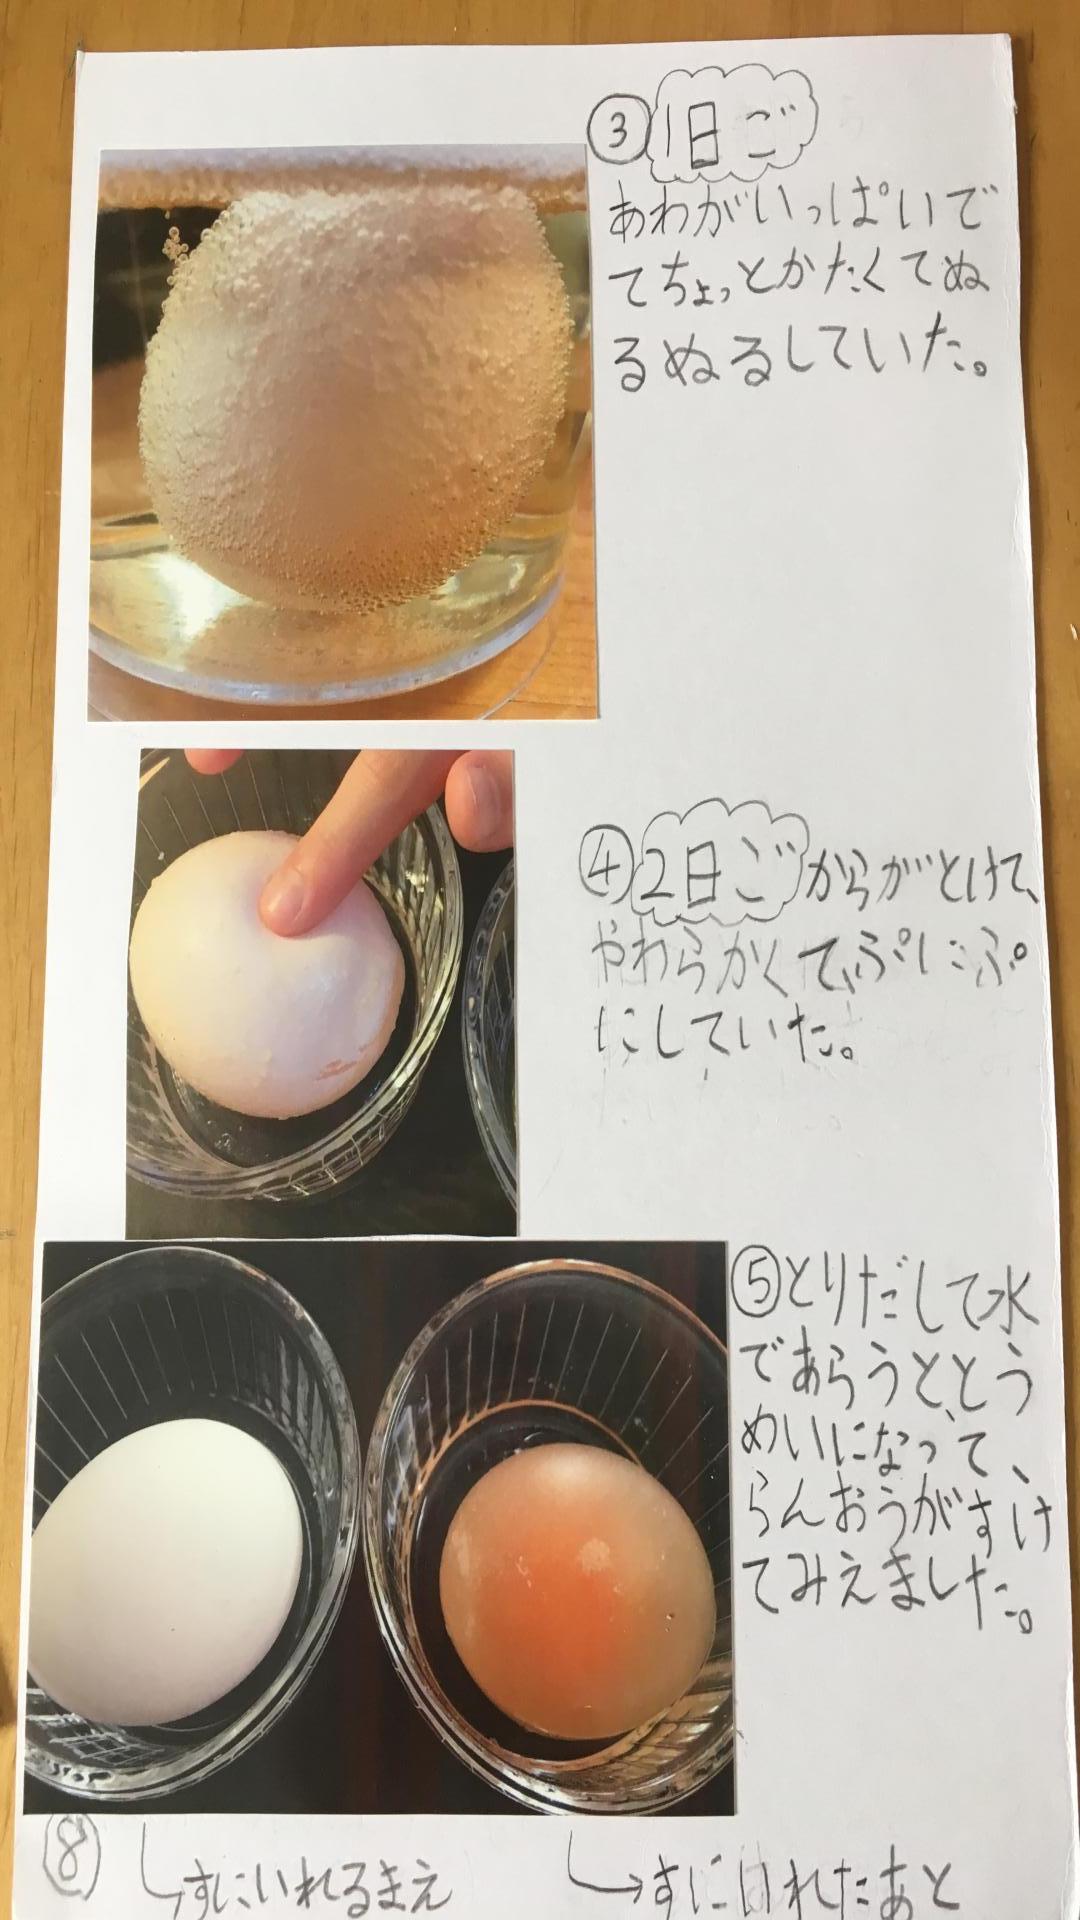 ③1日ご
あわがいっぱいで
てちょっとかたくてぬ
るぬるしていた。
④2日ごからがとけて、
やわらかくて、ぷにぷ
にしていた。
⑤とりだして水
であらうと、とう
めいになって、
らんおうがすけ
てみえました。
⑧
すにいれるまえ
すにいれたあと